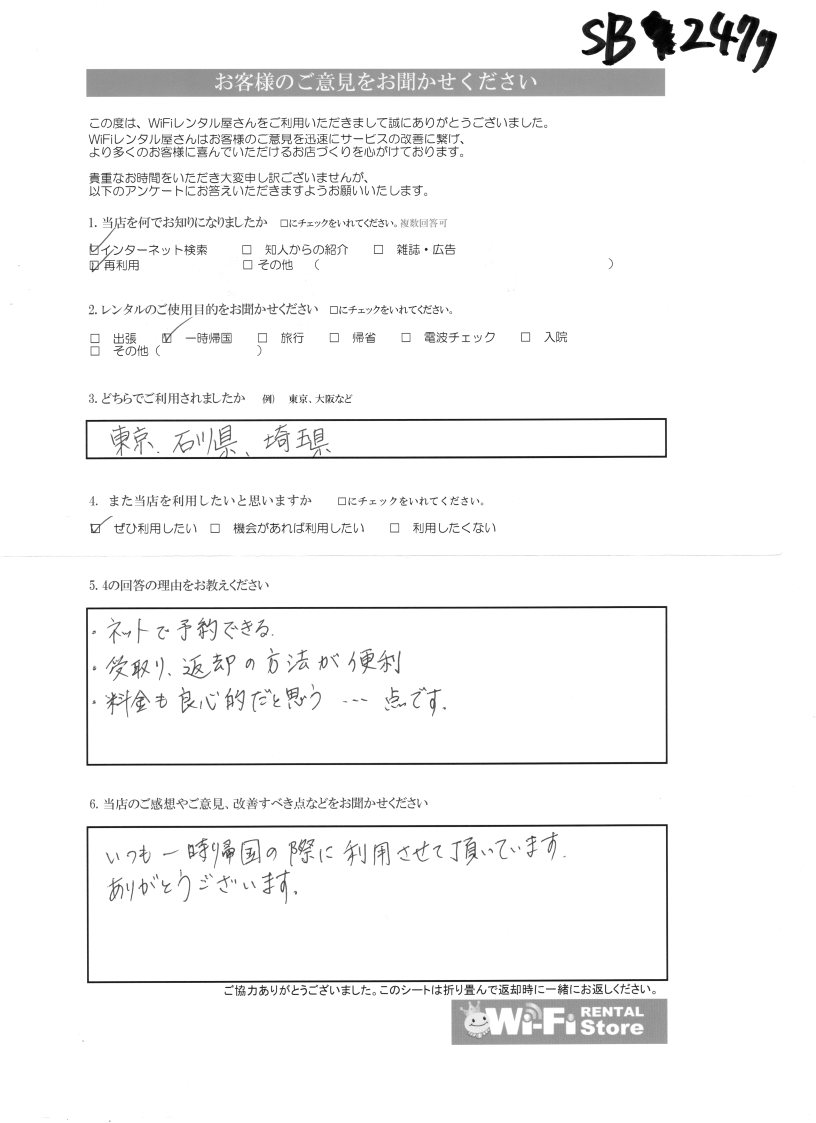 SB 2479
お客様のご意見をお聞かせください
この度は、WiFiレンタル屋さんをご利用いただきまして誠にありがとうございました。
WiFiレンタル屋さんはお客様のご意見を迅速にサービスの改善に繋げ、
より多くのお客様に喜んでいただけるお店づくりを心がけております。
貴重なお時間をいただき大変申し訳ございませんが、
以下のアンケートにお答えいただきますようお願いいたします。
1. 当店を何でお知りになりましたか □にチェックをいれてください。複数回答可
☑インターネット検索 □ 知人からの紹介 □ 雑誌・広告
☑ 再利用 □ その他 ( )
2. レンタルのご使用目的をお聞かせください □にチェックをいれてください。
□ 出張 ☑ 一時帰国 □ 旅行 □ 帰省 □ 電波チェック □ 入院
□ その他 ( )
3. どちらでご利用されましたか 例) 東京、大阪など
東京、石川県、埼玉県
4. また当店を利用したいと思いますか □にチェックをいれてください。
☑ ぜひ利用したい □ 機会があれば利用したい □ 利用したくない
5. 4の回答の理由をお教えください
・ネットで予約できる.
・受取り、返却の方法が便利
・料金も良心的だと思う … 点です.
6. 当店のご感想やご意見、改善すべき点などをお聞かせください
いつも一時帰国の際に利用させて頂いています.
ありがとうございます。
ご協力ありがとうございました。このシートは折り畳んで返却時に一緒にお返しください。
Wi-Fi RENTAL Store